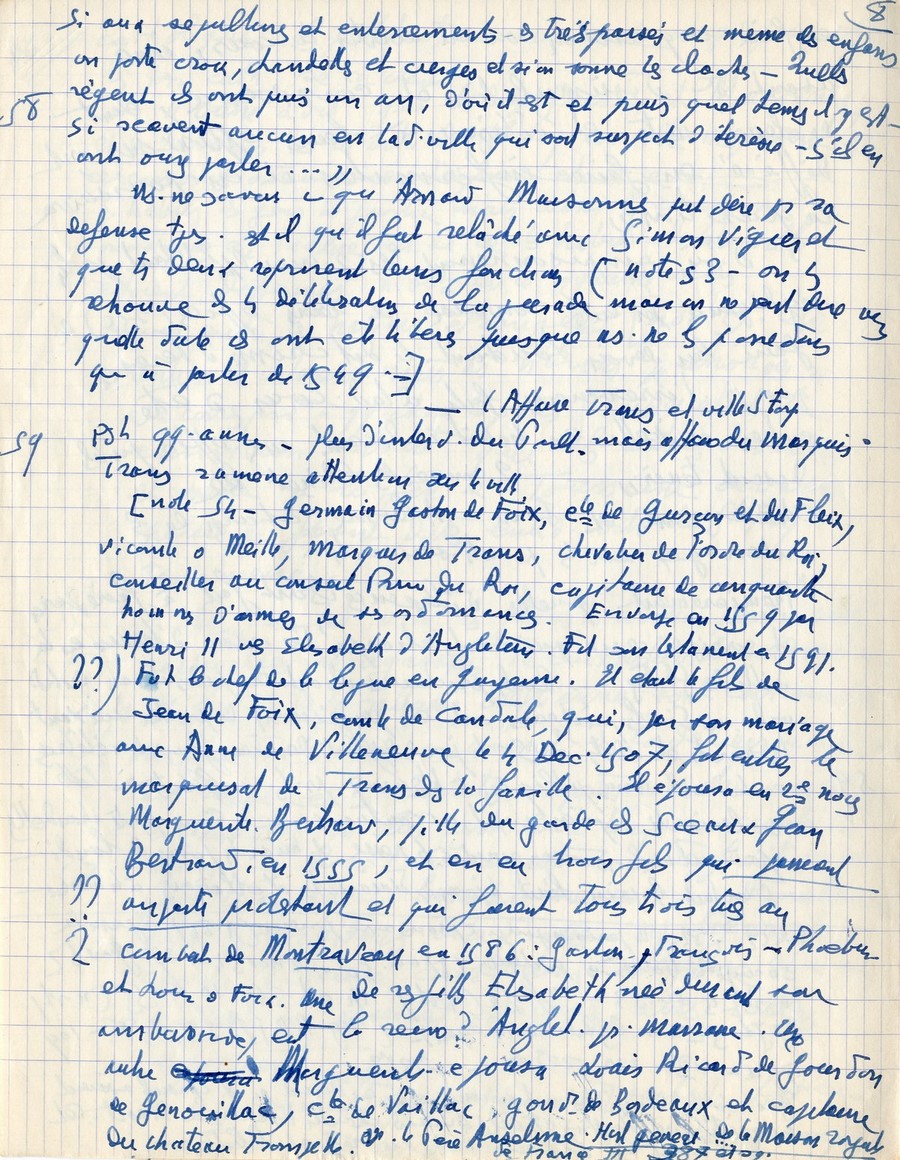 8
Si aux sepultures et enterements des trés passés et meme des enfans
on porte croix, chandelles et cierges et si on sonne les cloches - Quells
58 régent ils ont puis un an, d'où il est et puis quel temps il y est -
Si scavent aucun en ladi. ville qui soit suspect d'heresie - s'ils en
ont ouy parler ... "
Ns. ne savons ce que Arnaud Maisonne put dire pr sa
defense tjrs. est il qu'il fut relâché avec Simon Vigier et
que ts deux reprirent leurs fonctions (note 53 - on les
retrouve ds les déliberations de la jurade mais on ne peut dire vers
quelle date ils ont été libérés puisque ns. ne les possedons
qu'à partir de 1549 .-]
— (Affaire Trans et ville S Foy
59 Pdt qq. annes - plus d'interv. du Parlt. mais affaire du Marquis
Trans ramene attention sur la ville
[note 54 - Germain Gaston de Foix, cte de Gurson et du Fleix,
vicomte de Meille, marquis de Trans, chevalier de l'ordre du Roi,
conseiller au conseil Privé du Roi, capitaine de cinquante
hommes d'armes de ses ordonnances. Envoyé en 1559 par
Henri II vers Elisabeth d'Angleterre. Fit son testament en 1591.
??) Fut le chef de la ligue en Guyenne. Il etait le fils de
Jean de Foix, comte de Candale, qui, par son mariage
avec Anne de Villeneuve le 4 Dec. 1507, fit entrer le
marquisat de Trans ds la famille. Il épousa en 2es noces
Marguerite Bertrand, fille du garde des Sceaux Jean
Bertrand, en 1555, et en eu trois fils qui passent
?? au parti protestant et qui furent tous trois tués au
? combat de Montraveau en 1586 : Gaston, François - Phoebus
et Louis de Foix. Une de ses filles Elisabeth née durant son
ambassade, eut la reine d'Anglet. pr. marraine. Une
autre Marguerite epousa Louis Ricard de Gourdon
de Genouillac, cte de Vaillac, gouvr de Bordeaux et capitaine
du chateau Trompette. cf. le Père Anselme. Hist geneal de la Maison royale
de France III 387 et sv.